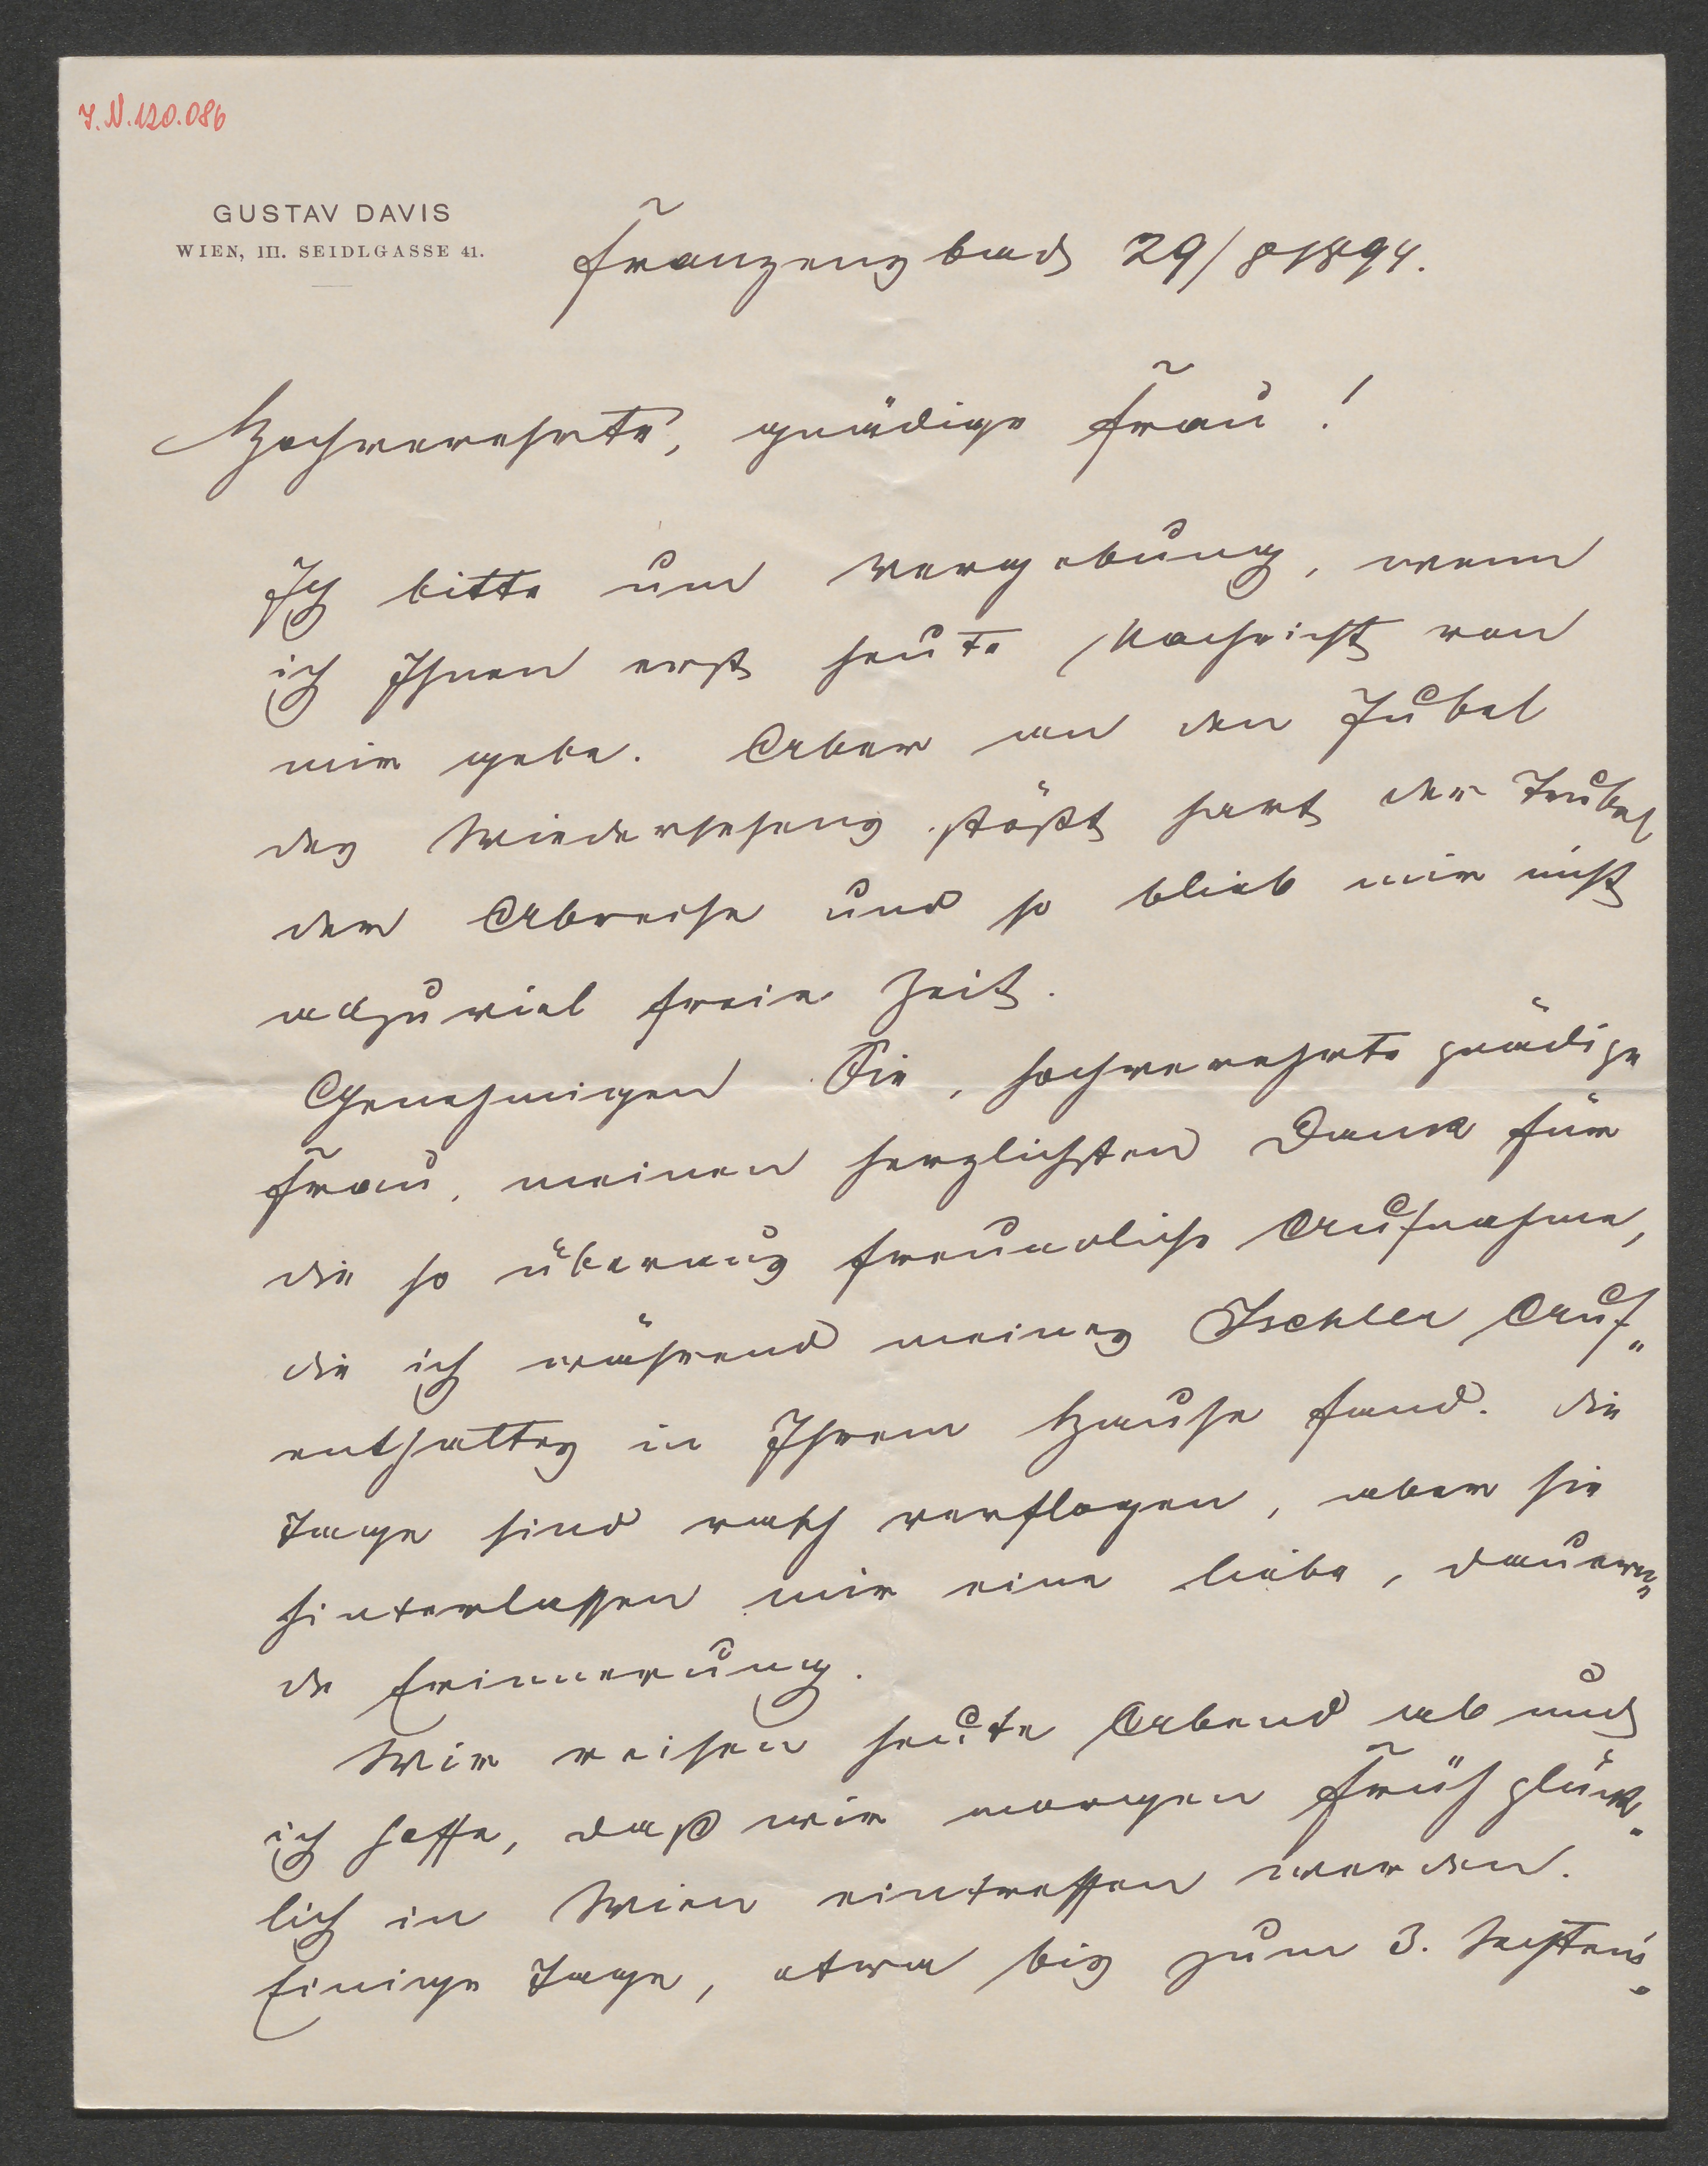 J. N. 120.086
GUSTAV DAVIS
WIEN, III. SEIDLGASSE 41.
Franzensbad 29/8 1894.
Hochverehrte, gnädige Frau!
Ich bitte um Vergebung, wenn
ich Ihnen erst heute Nachricht von
mir gebe. Aber an den Jubel
des Wiedersehens stößt hart der Trubel
der Abreise und so blieb mir nicht
allzuviel freie Zeit.
Genehmigen Sie, hochverehrte gnädige
Frau, meinen herzlichsten Dank für
die so überaus freundliche Aufnahme,
die ich während meines Ischler Auf-
enthaltes in Ihrem Hause fand. Die
Tage sind rasch verflogen, aber sie
hinterlassen mir eine liebe, dauern-
de Erinnerung.
Wir reisen heute Abend ab und
ich hoffe, daß wir morgen Früh glück-
lich in Wien eintreffen werden.
Einige Tage, etwa bis zum 3. Septem-